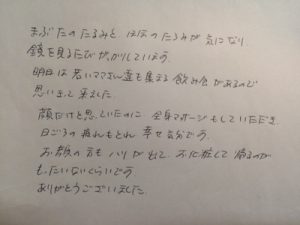 まぶたのたるみと、ほほのたるみが気になり
鏡を見るたびがっかりしています。
明日は若いママさん達も集まる飲み会があるので
思いきって来ました。
顔だけと思っていたのに、全身マッサージもしていただき
日ごろの疲れもとれ 幸せ気分です。
お顔の方も ハリが出て、お化粧して帰るのが
もったいないくらいです。
ありがとうございました。